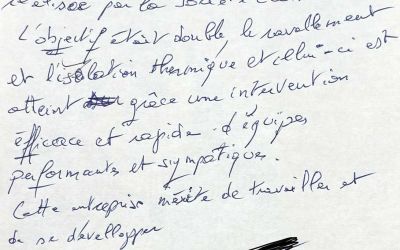 réalisée par la société
L'objectif était double, le ravallement
et l'isolation thermique et celui-ci est
atteint grâce une intervention
éfficace et rapide d'équipes
performantes et sympatiques.
Cette entreprise mérite de travailler et
de se dévellopper